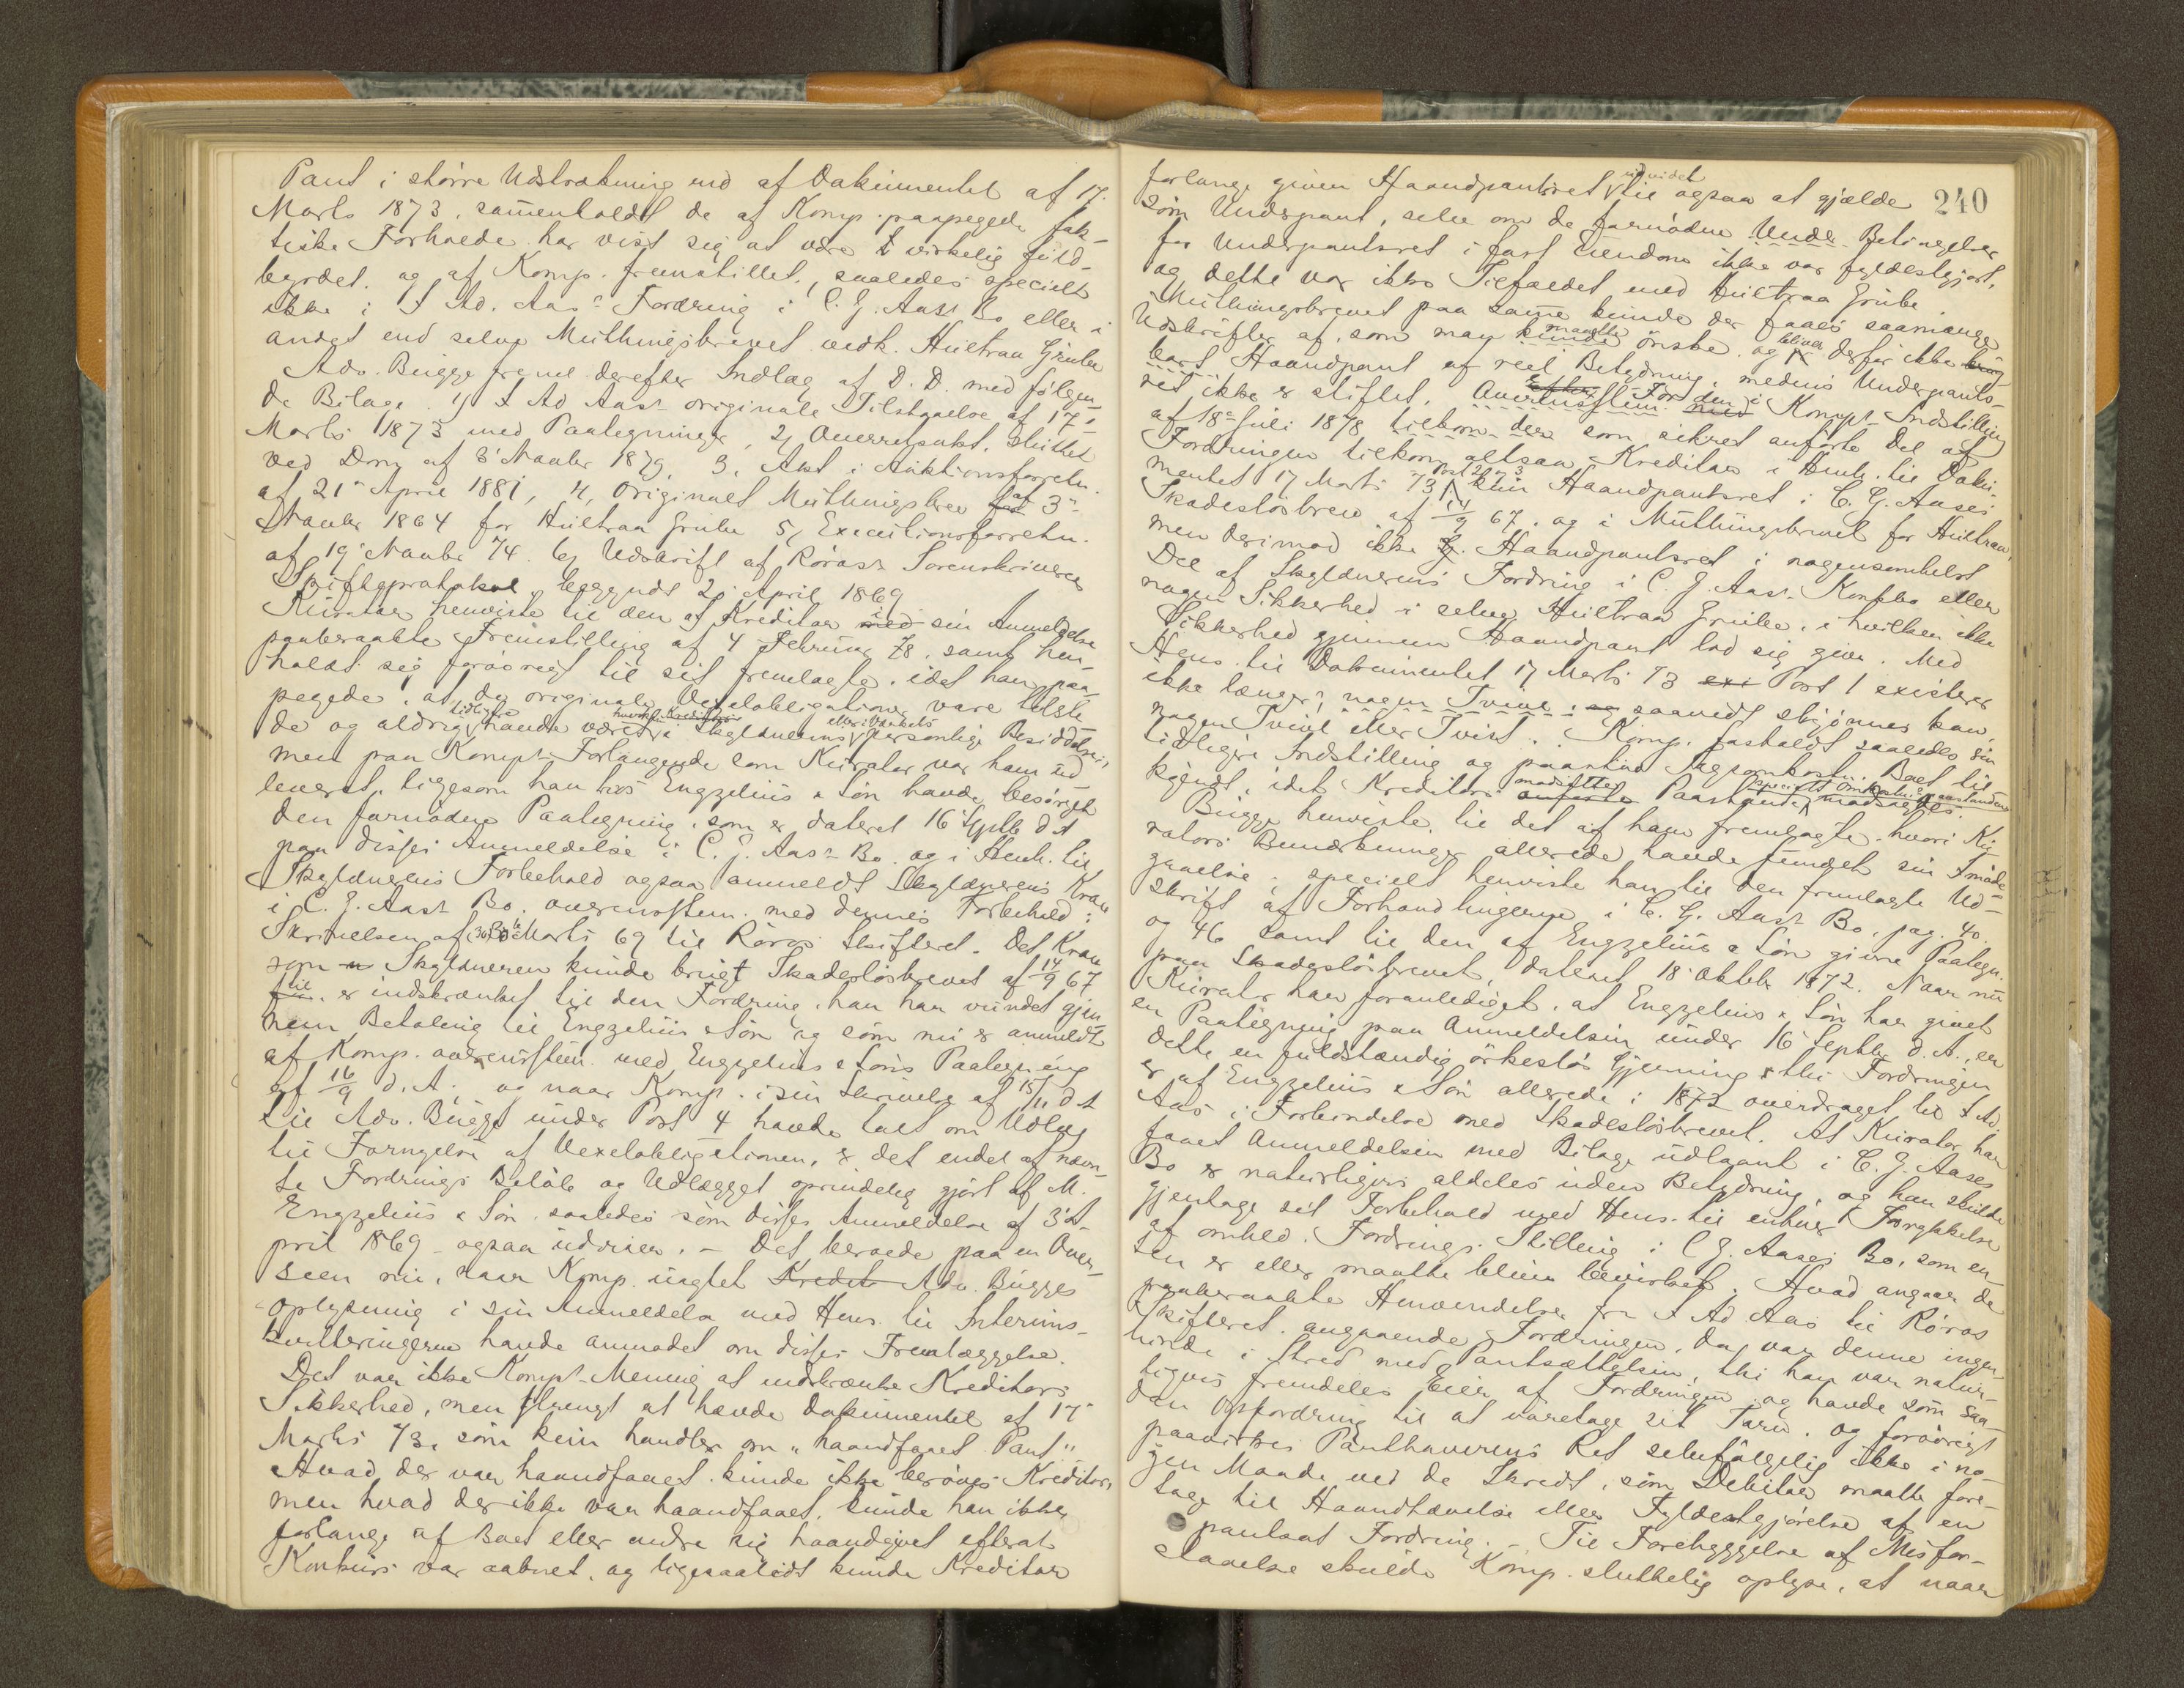 Pant i större Udstrækning end af Dokumentet af 17.
Marts 1873, sam̄enholdt de af Komp. paapegede fak-
tiske Forholde har vist sig at være virkelig fuld-
byrdet og af Komp. fremstillet, saaledes specielt
ikke i J. Ad. Aas's Fordring i C. J. Aas's Bo eller i
andet end selve Muthingsbrevet vedk. Hultraa Grube
Adv. Bugge freml. derefter Indlæg af D. D. med fölgen-
de Bilage. 1) J Ad Aas's originale Tilstaaelse af 17de
Marts 1873 med Paategninger, 2) Overretsakt, sluttet
ved Dom af 3' Novbr 1879, 3, Akt i Auktionsforretn.
af 21de April 1881, 4, Originalt Muthingsbrev af 3de
Novbr 1864 for Hultraa Grube 5, Executionsforretn.
af 19' Novbr 74. 6, Udskrift af Röros's Sorenskriveres
Skifteprotokol, begyndt 2' April 1869
Kurator henviste til den af Kreditor i sin Anmeldelse
paaberaabte Fremstilling af 4 Februar 78, samt hen-
holdt sig forövrigt til sit fremlagte, idet han paa-
pegede, at de originale Vexelobligationer vare tilste-
de og aldrig tidligere havde været i Skyldnerens eller Værkets personlige Besiddelse,
men paa Komp's Forlangende som Kurator var ham ud-
leveret, ligesom han hos Engzelius & Sön havde besörget
den fornödne Paategning, som er dateret 16 Septb d A
paa disses Anmeldelse i C. J. Aas's Bo. og i Henh. til
Skyldnerens Forbehold ogsaa anmeldt Skyldnerens Krav
i C. J. Aas's Bo, overensstem. med dennes Forbehold i
Skrivelsen af 30te Marts 69 til Röros Skifteret. Det Krav
som Skyldneren kunde brugt Skadeslösbrevet af 14/9 67
til, er indskrænket til den Fordring, han har vundet gjen-
nem Betaling til Engzelius & Sön og som nu er anmeldt
af Komp. overensstem. med Engzelius & Söns Paategning
af 16/9 d. A. og naar Komp. i sin Skrivelse af 15/11 d A
til Adv. Bugge under Post 4 havde talt om Udlæg
til Fornyelse af Vexelobligationen, er det endel af nævn-
te Fordrings Belöb og Udlægget oprindelig gjort af M.
Engzelius & Sön, saaledes som disses Anmeldelse af 3' A-
pril 1869 ogsaa udviser. – Det beroede paa en Over-
seen nu, naar Komp. uagtet Adv. Bugges
oplysning i sin Anmeldelse med Hens. til Interims-
kvitteringerne havde anmodet om disses Fremlæggelse.
Det var ikke Komp's Mening at indskrænke Kreditors
Sikkerhed, men strengt at hævde Dokumentet af 17de
Marts 73, som kun handler om „haandfaaet Pant"
Hvad der var haandfaaet kunde ikke berøves Kreditor,
men hvad der ikke var haandfaaet, kunde han ikke
forlange af Boet eller andre sig haandgivet efterat
Konkurs var aabnet, og ligesaalidt kunde Kreditor
240
forlange given Haandpantsret udvidet til ogsaa at gjælde
som Underpant, selv om de fornödne Betingelser
for Underpantsret i fast Eiendom ikke var fyldestgjort,
og dette var ikke Tilfældet med Hultraa Grube.
Muthingsbrevet paa sam̄e kunde der faaes saamange
Udskrifter af, som man maatte önske og bliver derfor ikke
Haandpant af reel Betydning, medens Underpants-
ret ikke er stiftet. Den i Komp's Indstilling
af 18de Juli 1878 som sikret anförte Del af
Fordringen tilkom altsaa Kreditor i Henh. til Doku-
mentet 17 Marts 73 Post 2 og 3 kun Haandpantsret i C. J. Aases
Skadeslösbrev af 14/9 67, og i Muthingsbrevet for Hultraa,
men derimod ikke Haandpantsret i nogensomhelst
Del af Skyldnerens Fordring i C. J. Aas's Konkbo eller
nogen Sikkerhed i selve Hultraa Grube, i hvilken ikke
Sikkerhed gjennem Haandpant lod sig give. Med
Hens. til Dokumentet 17 Marts 73 Post 1 existerer
ikke længer, saavidt skjönnes kan,
nogen Tvivl eller Tvist. Komp. fastholdt saaledes sin
tidligere Indstilling og paastod Sagsomkostn. Boet til-
kjendt, idet Kreditors modsatte Paastande, specielt Omkostningspaastanden modsagdes.
Bugge henviste til det af ham fremlagte, hvori Ku-
rators Bemærkninger allerede havde fundet sin Imöde-
gaaelse, specielt henviste han til den fremlagte Ud-
skrift af Forhandlingerne i C. J. Aas's Bo, pag. 40
og 46 samt til den af Engzelius & Sön givne Paategn.
paa Skadeslösbrevet, dateret 18' Oktbr 1872. Naar nu
Kurator har foranlediget, at Engzelius & Sön har givet
en Paategning paa Anmeldelsen under 16' Septbr d. A., er
dette en fuldstændig örkeslös Gjerning, thi Fordringen
er af Engzelius & Sön allerede i 1872 overdraget til J Ad.
Aas i Forbindelse med Skadeslösbrevet. At Kurator har
faaet Anmeldelsen med Bilage udlaant i C. J. Aases
Bo er naturligvis aldeles uden Betydning, og han skulde
gjentage sit Forbehold med Hens. til enhver Forrykkelse
af omhd. Fordrings Stilling i C J. Aases Bo, som en-
ten er eller maatte blive bevirket. Hvad angaar de
paaberaabte Henvendelser fra J Ad Aas til Röros
Skifteret angaaende Fordringen, da var denne ingen-
lunde i Strid med Pantsættelsen, thi han var natur-
ligvis fremdeles Eier af Fordringen og havde som saa-
dan Opfordring til at varetage sit Tarv, og forövrigt
paavirkes Panthaverens Ret selvfölgelig ikke i no-
gen Maade ved de Skridt, som Debitor maatte fore-
tage til Haandhævelse eller Fyldestgjörelse af en
pantsat Fordring. – Til Forebyggelse af Misfor-
staaelse skulde Komp. sluttelig oplyse, at naar